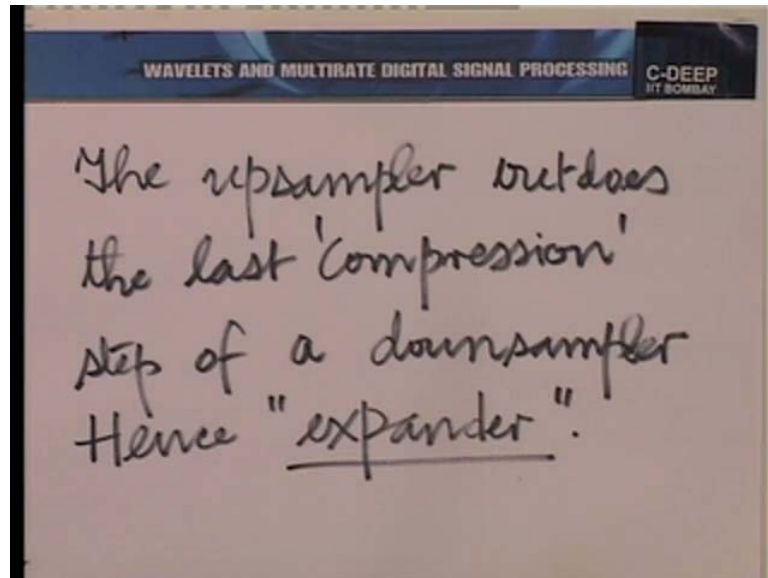 WAVELETS AND MULTIRATE DIGITAL SIGNAL PROCESSING
C-DEEP
IIT BOMBAY
The upsampler outdoes
the last 'compression'
step of a downsampler
Hence "expander".